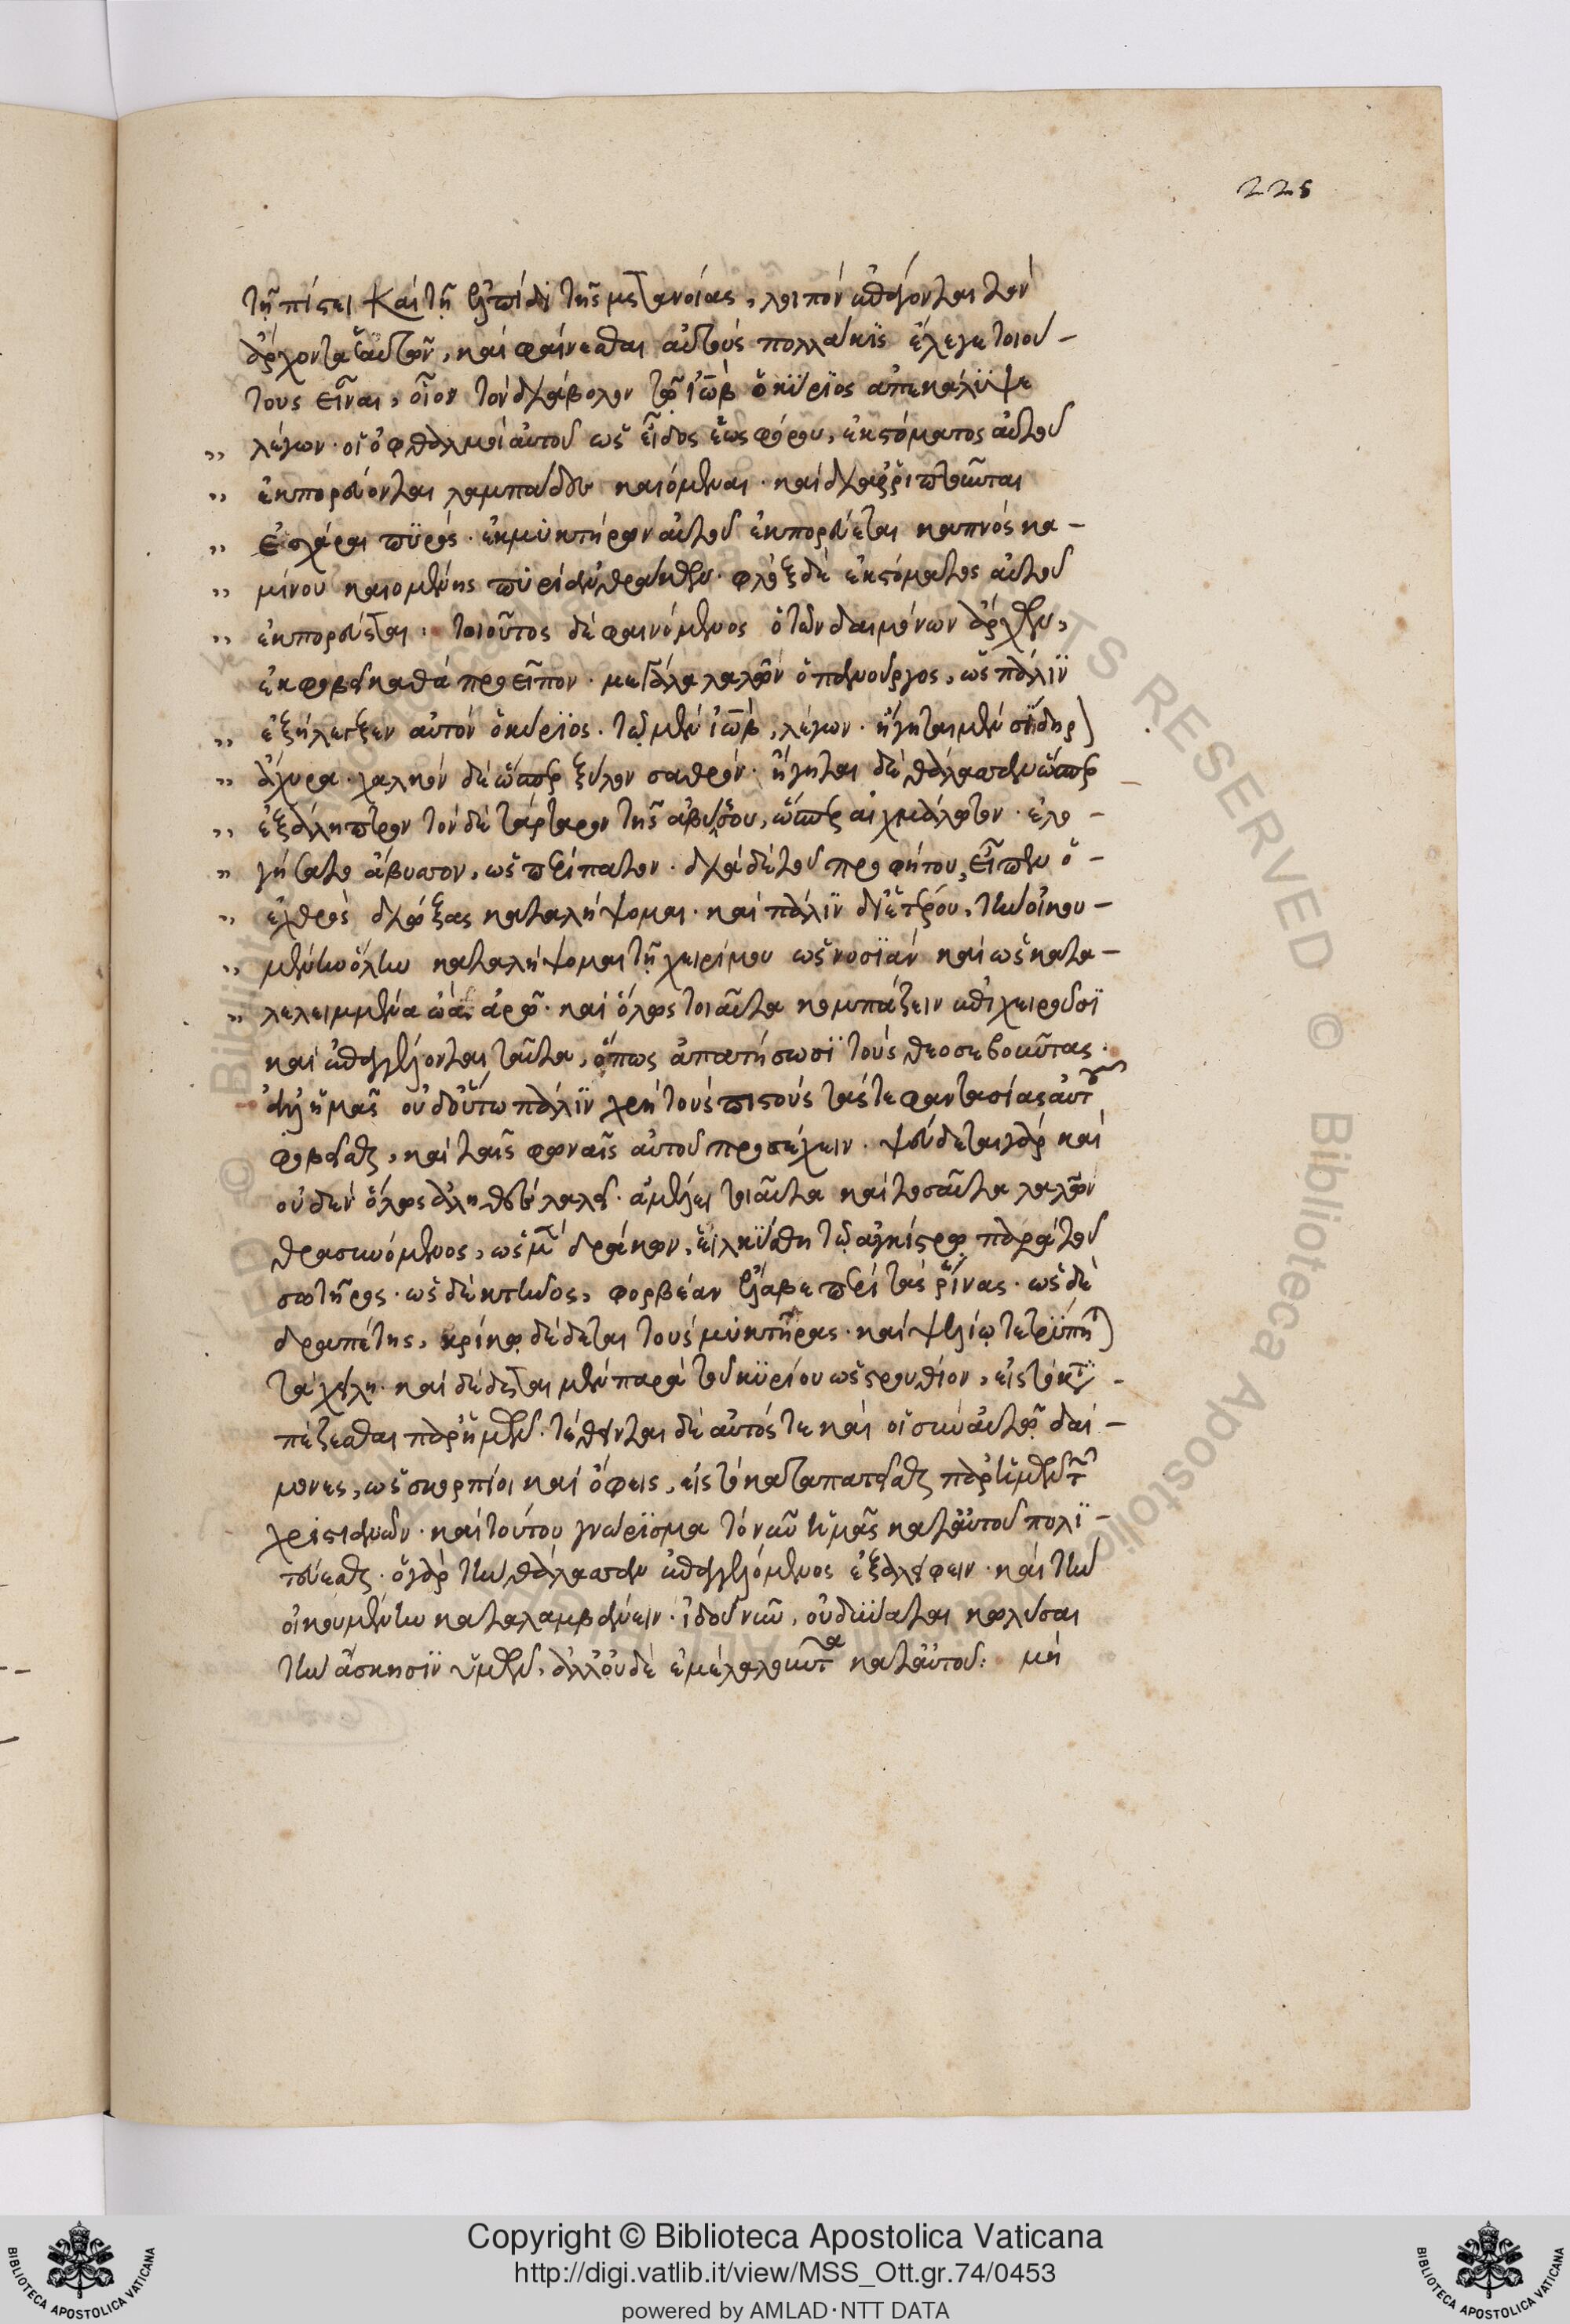 225
τῇ πίστει καὶ τῇ ἐλπίδι τῆς μετανοίας, λοιπὸν ἐπάγονται τὸν
ἄρχοντα ἑαυτῶν, καὶ φαίνεσθαι αὐτοὺς πολλάκις ἔλεγε τοιού-
τους εἶναι, οἷον τὸν διάβολον τῷ ἰὼβ ὁ κύριος ἀπεκάλυψε
„ λέγων· οἱ ὀφθαλμοὶ αὐτοῦ ὡς εἶδος ἑωσφόρου, ἐκ στόματος αὐτοῦ
„ ἐκπορεύονται λαμπάδες καιόμεναι· καὶ διαρριπτοῦνται
„ ἐσχάραι πυρός· ἐκ μυκτήρων αὐτοῦ ἐκπορεύεται καπνὸς κα-
„ μίνου καιομένης πυρὶ ἀνθράκων· φλὸξ δὲ ἐκ στόματος αὐτοῦ
„ ἐκπορεύεται. τοιοῦτος δὲ φαινόμενος ὁ τῶν δαιμόνων ἄρχων,
ἐκφοβεῖ καθὰ προεῖπον· μεγάλα λαλῶν ὁ πανοῦργος, ὡς πάλιν
„ ἐξήλεγξεν αὐτὸν ὁ κύριος· τῷ μὲν ἰὼβ, λέγων· ἥγηται μὲν σίδηρον
„ ἄχυρα· χαλκὸν δὲ ὥσπερ ξύλον σαθρόν· ἥγηται δὲ θάλασσαν ὥσπερ
„ ἐξάλειπτρον τὸν δὲ τάρταρον τῆς ἀβύσσου, ὥσπερ αἰχμάλωτον· ἐλο-
„ γήσατο ἄβυσσον, ὡς περίπατον· διὰ δὲ τοῦ προφήτου, εἶπεν ὁ-
„ ἐχθρὸς διώξας καταλήψομαι· καὶ πάλιν δι' ἑτέρου, τὴν οἰκου-
„ μένην ὅλην καταλήψομαι τῇ χειρί μου ὡς νοσσιὰν καὶ ὡς κατα-
„ λελειμμένα ὠὰ ἀρῶ· καὶ ὅλως τοιαῦτα κομπάζειν ἐπιχειροῦσι
καὶ ἐπαγγέλλονται ταῦτα, ὅπως ἀπατήσωσι τοὺς θεοσεβοῦντας·
ἀλλ' ἡμᾶς οὐδ' οὕτω πάλιν χρὴ τοὺς πιστοὺς τάς τε φαντασίας αὐτοῦ
φοβεῖσθαι, καὶ ταῖς φωναῖς αὐτοῦ προσέχειν· ψεύδεται γὰρ καὶ
οὐδὲν ὅλως ἀληθὲς λαλεῖ· ἀμέλει τοιαῦτα καὶ τοσαῦτα λαλῶν
θρασυνόμενος, ὡς μὲν δράκων, εἱλκύσθη τῷ ἀγκίστρῳ παρὰ τοῦ
σωτῆρος· ὡς δὲ κτῆνος, φορβέαν ἔλαβε περὶ τὰς ῥῖνας· ὡς δὲ
δραπέτης, κρίκῳ δέδεται τοὺς μυκτῆρας· καὶ ψελίῳ τετρύπηται
τὰ χείλη· καὶ δέδεται μὲν παρὰ τοῦ κυρίου ὡς στρουθίον, εἰς τὸ κατα-
παίζεσθαι παρ' ἡμῶν· τέθεινται δὲ αὐτός τε καὶ οἱ σὺν αὐτῷ δαί-
μονες, ὡς σκορπίοι καὶ ὄφεις, εἰς τὸ καταπατεῖσθαι παρ' ἡμῶν τῶν
χριστιανῶν· καὶ τούτου γνώρισμα τὸ νῦν ἡμᾶς κατ' αὐτοῦ πολι-
τεύεσθαι· ὁ γὰρ τὴν θάλασσαν ἐπαγγελλόμενος ἐξαλείφειν· καὶ τὴν
οἰκουμένην καταλαμβάνειν· ἰδοὺ νῦν, οὐ δύναται κωλῦσαι
τὴν ἄσκησιν ὑμῶν, ἀλλ' οὐδὲ ἐμὲ λαλοῦντα κατ' αὐτοῦ: μὴ
Copyright © Biblioteca Apostolica Vaticana
http://digi.vatlib.it/view/MSS_Ott.gr.74/0453
powered by AMLAD·NTT DATA